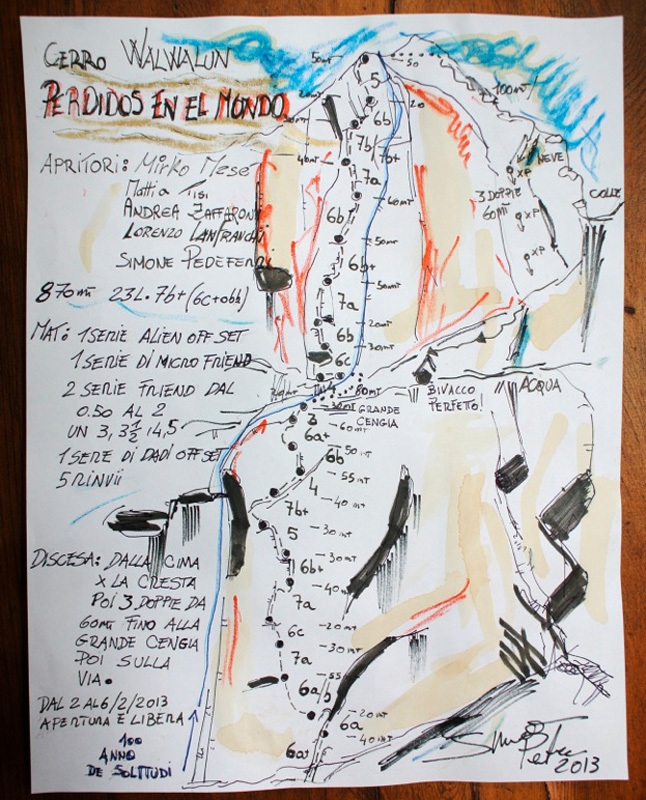 CERRO WALWALUN
PERDIDOS EN EL MONDO
APRITORI: MIRKO MASE
MATTIA
ANDREA ZAFFARONI
LORENZO LANFRANCHI
SIMONE PEDEFERRI
870mt 23L. 7b+ (6c+obb)
MAT: 1 SERIE ALIEN OFF SET
1 SERIE DI MICRO FRIEND
2 SERIE FRIEND DAL
0.50 AL 2
UN 3, 3½, 4, 5
1 SERIE DI DADI OFFSET
5 RINVII
DISCESA: DALLA CIMA
X LA CRESTA
POI 3 DOPPIE DA
60mt FINO ALLA
GRANDE CENGIA
POI SULLA
VIA.
DAL 2 AL 6/2/2013
APERTURA E LIBERA
100
ANNO
DE SOLITUDI
50mt
50
5
100mt
20
6b
7b/7b+
40mt
7a
60mt
6b
50mt
6b+
50mt
7a
20mt
6b
30mt
6c
60mt
30mt
GRANDE
CENGIA
3
60mt
6a+
50mt
6b
55mt
4
40mt
7b+
30mt
5
30mt
6b+
40mt
7a
20mt
6c
30mt
7a
55
6a/b
20mt
6a
40mt
6a
NEVE
XP
3 DOPPIE
60MT
XP
XP
COLLE
BIVACCO
PERFETTO!
ACQUA
2013